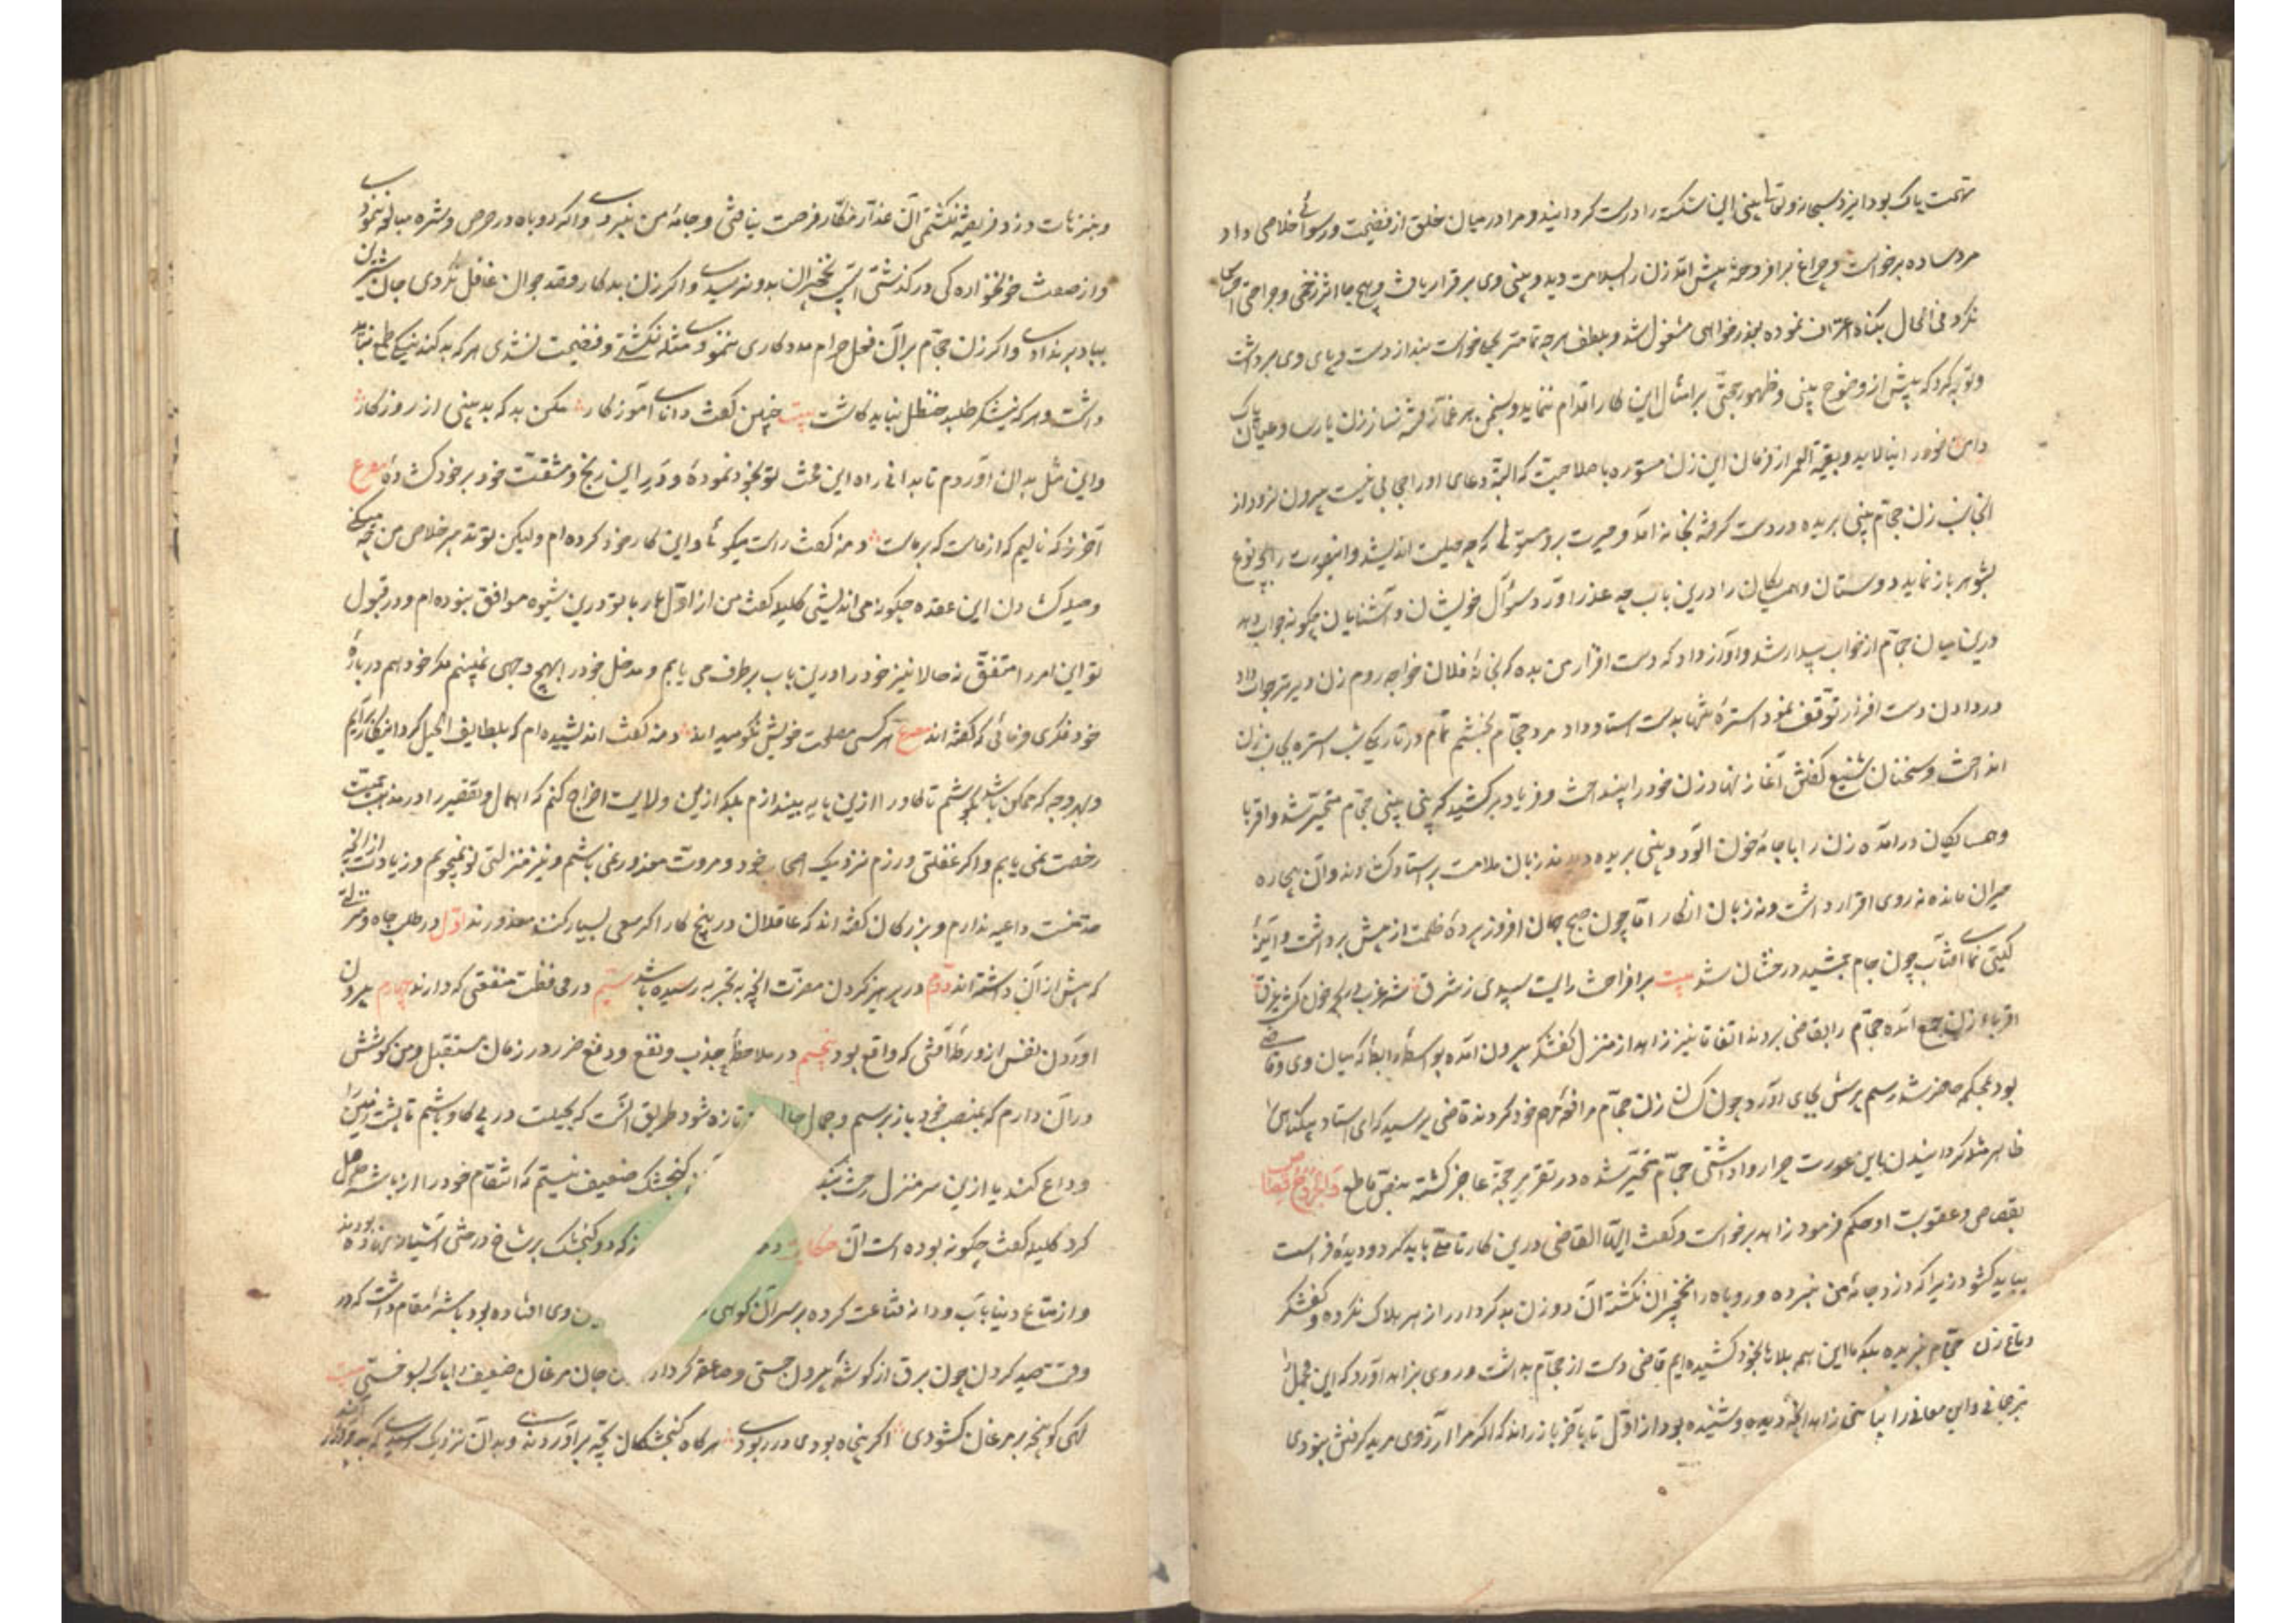 تهمت پاک بود ایزد سبحانه وتعالی بینی این شکسته را درست کردانید و مرا در میان خلق از فضیحت و رسوائی خلاصی داد
مرد ساده برخواست و چراغ برافروخته پیش آمد زن را بسلامت دید و بینی وی برقرار یافت و هیچ جا اثر زخمی و جراحتی احساس
نکرد فی الحال بکناه اعتراف نموده بعذرخواهی مشغول شد و بلطف هرچه تمامتر بحلی خواست بند از دست و پای وی برداشت
و توبه کرد که پیش از وضوح بینی و ظهور حجتی بر امثال این کار اقدام ننماید و بسخن هر غماز فتنه ساز زن پارسا و عیال پاک
دامن خود را نیالاید و بقیة العمر از فرمان این زن مستوره با صلاحیت که البته دعای او را حجابی نیست بیرون نرود از
آنجانب زن حجام بینی بریده در دست کرفته بخانه آمد و حیرت برو مستولی که چه حیلت اندیشد و این صورت را بچه نوع
بشوهر باز نماید دوستان و همسایکان را درین باب چه عذر آورد و سوأل خویشان و آشنایان چکونه جواب دهد
درین میان حجام از خواب بیدار شد و آواز داد که دست افزار من بده که بخانهٔ فلان خواجه روم زن دیرتر جواب داد
و در دادن دست افزار توقف نمود استرهٔ تنها بدست استاد داد مرد حجام بخشم تمام در تاریکی شب استره بجانب زن
انداخت و سخنان شنیع گفتن آغاز نهاد زن خود را بینداخت و فریاد برکشید که بینی بینی حجام متحیر شد و اقربا
و همسایکان درآمده زن را با جامهٔ خون آلود و بینی بریده دیدند زبان ملامت بر استاد کشادند و آن بیچاره
حیران مانده نه روی اقرار داشت و نه زبان انکار اما چون صبح جهان افروز پردهٔ ظلمت از پیش برداشت و آینهٔ
کیتی نمای آفتاب چون جام جمشید درخشان شد بیت برافراخت رایت سپیدی ز شرق
اقربای زن جمع آمده حجام را بقاضی بردند اتفاقا نیز زاهد از منزل کفشکر بیرون آمده بواسطهٔ رابطهٔ که میان وی و قاضی
بود بمحکمه حاضر شد رسم پرسش بجای آورد چون کسان زن حجام مرافعهٔ مهم خود کردند قاضی پرسید که ای استاد بیکناهی
ظاهر مثله کردانیدن این عورت چرا روا داشتی حجام متحیر شده در تقریر حجة عاجز کشته بنص قاطع والجروح قصاص
بقصاص و عقوبت او حکم فرمود زاهد برخواست و کفت ایها القاضی درین کار تاملی باید کرد و دیدهٔ فراست
بباید کشود زیرا که دزد جامهٔ من نبرده و روباه را نخچیران نکشته آن و زن بدکردار را زهر هلاک نکرده و کفشکر
دماغ زن حجام نبریده بلکه ما این همه بلاها بخود کشیده ایم قاضی دست از حجام بداشت و روی بزاهد آورد که این مجمل را
ترجمانی و این معانی را بیانی زاهد آنچه دیده و شنیده بود از اول تا آخر باز راند که اکر مرا آرزوی مرید کرفتن نبودی
و بترهات دزد فریفته نکشتمی آن غدار مکار فرصت نیافتی و جامهٔ من نبردی و اکر روباه در حرص و شره مبالغه ننمودی
و از صفت خونخواره کی درکذشتی آسیب نخچیران بدو نرسیدی و اکر زن بدکار قصد جوان غافل نکردی جان شیرین
بباد برندادی و اکر زن حجام بر آن فعل حرام مددکاری ننمودی مثله نکشتی و فضیحت نشدی هر که بد کند نیکی طمع نباید
داشت و هر که نیشکر طلبد حنظل نباید کاشت بیت چنین کفت دانای آموزکار مکن بد که بد بینی از روزکار
و این مثل بدان آوردم تا بدانی راه این محنت تو بخود نمودهٔ و در این رنج و مشقت خود بر خود کشادهٔ مصرع
آخر ز که نالیم که از ماست که بر ماست دمنه کفت راست میکوئی و این کار خود کرده ام ولیکن تو تدبیر خلاص من چه میکنی
و حیله کشادن این عقده چکونه می اندیشی کلیله کفت من از اول کار با تو درین شیوه موافق نبوده ام و در قبول
تو این امر را متفق نه حالا نیز خود را درین باب برطرف می یابم و مدخل خود را بهیچ وجهی نمی بینم مکر خود هم دربارهٔ
خود فکری فرمائی که کفته اند مصرع هر کسی مصلحت خویش نکو میداند دمنه کفت اندیشیده ام که بلطایف الحیل کرد این کار برآیم
و بهر وجه که ممکن باشد بکوشم تا کاو را ازین پایه بیندازم بلکه ازین ولایت اخراج کنم که اهمال و تقصیر را در مذهب حمیت
رخصت نمی یابم و اکر غفلتی ورزم نزدیک اصحاب خرد و مروت معذور نمی باشم و نیز منزلتی نو نمیجویم و زیادت از آنچه
متمنیست داعیه ندارم و بزرکان کفته اند که عاقلان در پنج کار اکر سعی بسیار کنند معذورند اول در طلب جاه و منزلتی
که پیش از آن داشته اند دوم در پرهیز کردن مضرت آنچه بتجربه رسیده باشد سیم در محافظت منفعتی که دارند چهارم بیرون
آوردن نفس از ورطهٔ آفتی که واقع بود پنجم در ملاحظهٔ جذب و نفع و دفع ضرر در زمان مستقبل و من کوشش
در آن دارم که بمنصب خود باز برسم و جمال حال تازه شود طریق آنست که بحیلت در پی کاو باشم تا پشت زمین را
وداع کند یا ازین سرمنزل رخت کنجشک ضعیف نیستم که انتقام خود را از باشه حاصل
کرد کلیله کفت چکونه بوده است آن حکایت که دو کنجشک بر شاخ درختی آشیانه نهاده بودند
و از متاع دنیا بآب و دانهٔ قناعت کرده بر سر آن کوهی وی افتاده بود باشهٔ مقام داشت که در
وقت صید کردن چون برق از کوشهٔ بیرون جستی و صاعقه کردار جان مرغان ضعیف را پاک بسوختی بیت
کهی کو پنجه بر مرغان کشودی اکر پنجاه بودی در ربودی هر کاه کنجشکان بچه برآوردندی و بدان نزدیک رسیدی که